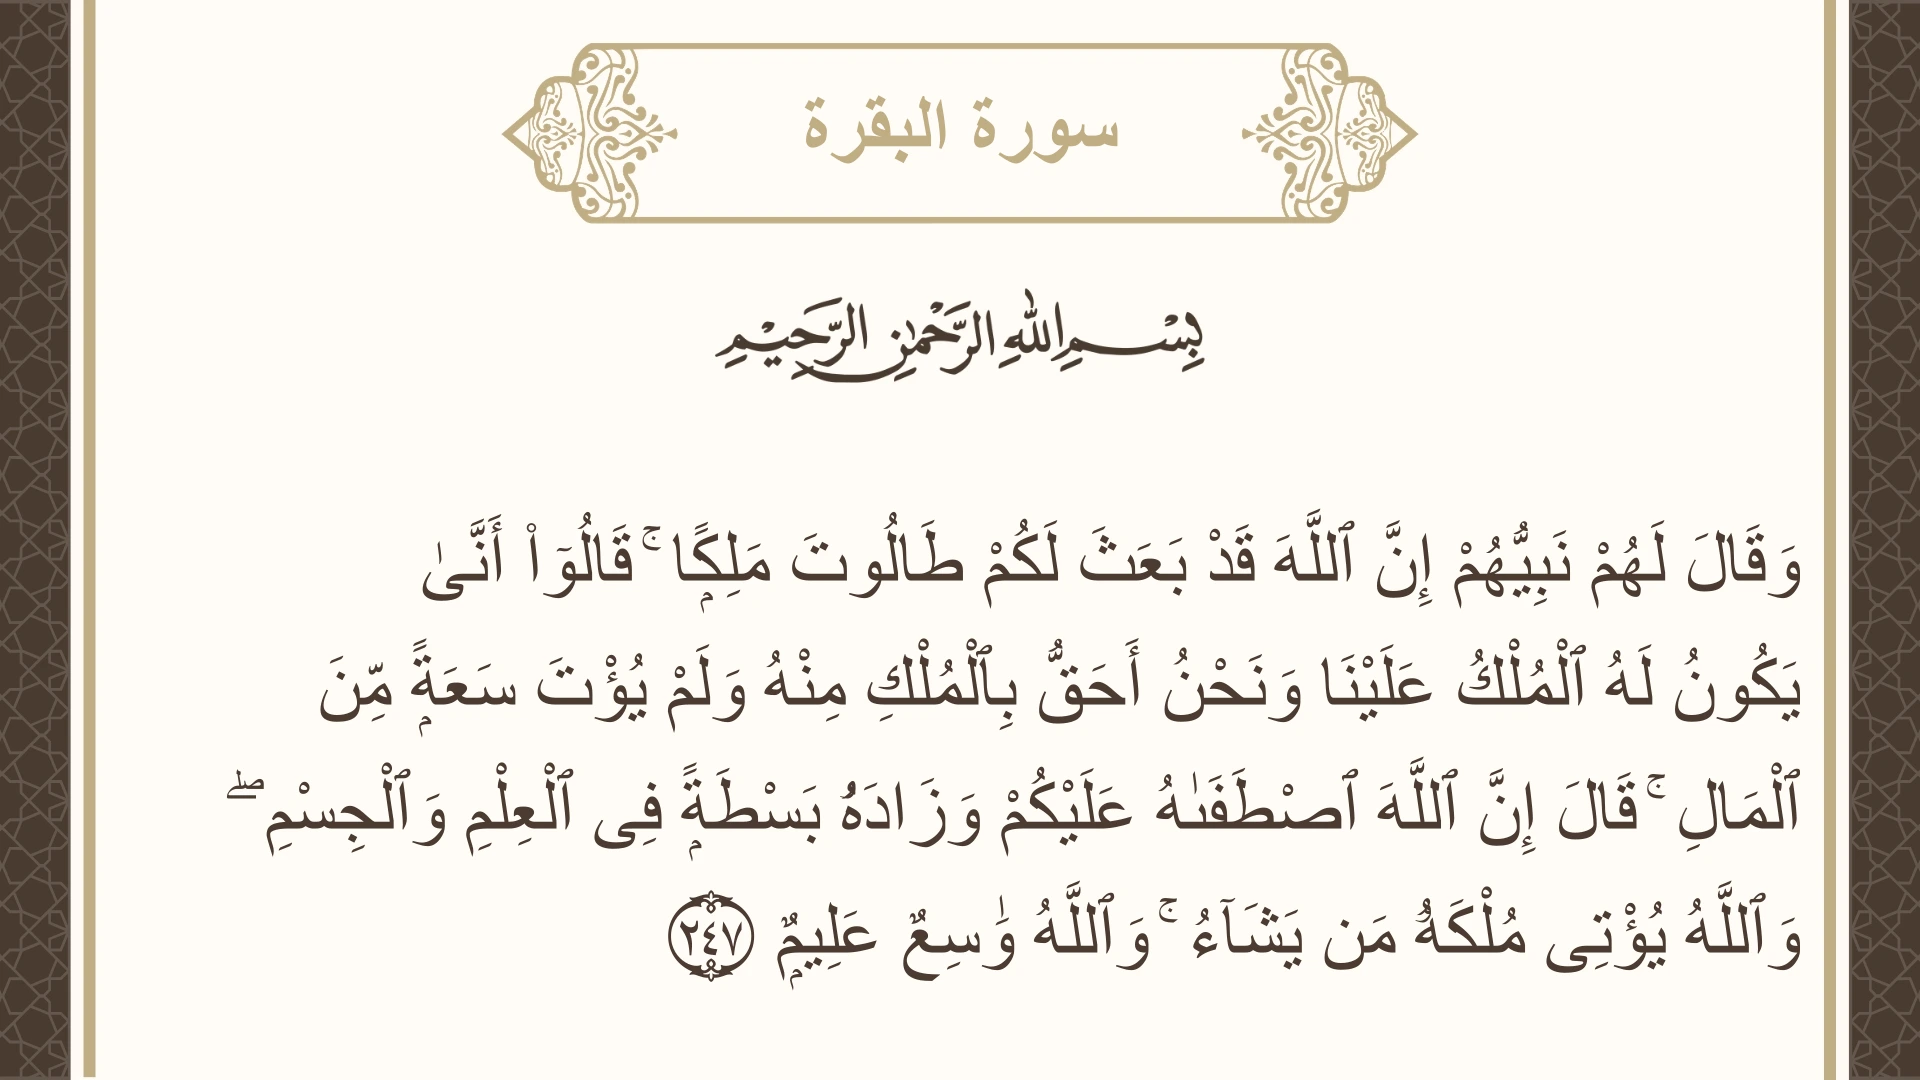 سورة البقرة
بِسْمِ اللهِ الرَّحْمٰنِ الرَّحِيْمِ
وَقَالَ لَهُمْ نَبِيُّهُمْ إِنَّ ٱللَّهَ قَدْ بَعَثَ لَكُمْ طَالُوتَ مَلِكًۭا ۚ قَالُوٓا۟ أَنَّىٰ
يَكُونُ لَهُ ٱلْمُلْكُ عَلَيْنَا وَنَحْنُ أَحَقُّ بِٱلْمُلْكِ مِنْهُ وَلَمْ يُؤْتَ سَعَةًۭ مِّنَ
ٱلْمَالِ ۚ قَالَ إِنَّ ٱللَّهَ ٱصْطَفَىٰهُ عَلَيْكُمْ وَزَادَهُۥ بَسْطَةًۭ فِى ٱلْعِلْمِ وَٱلْجِسْمِ ۖ
وَٱللَّهُ يُؤْتِى مُلْكَهُۥ مَن يَشَآءُ ۚ وَٱللَّهُ وَٰسِعٌ عَلِيمٌۭ ٢٤٧